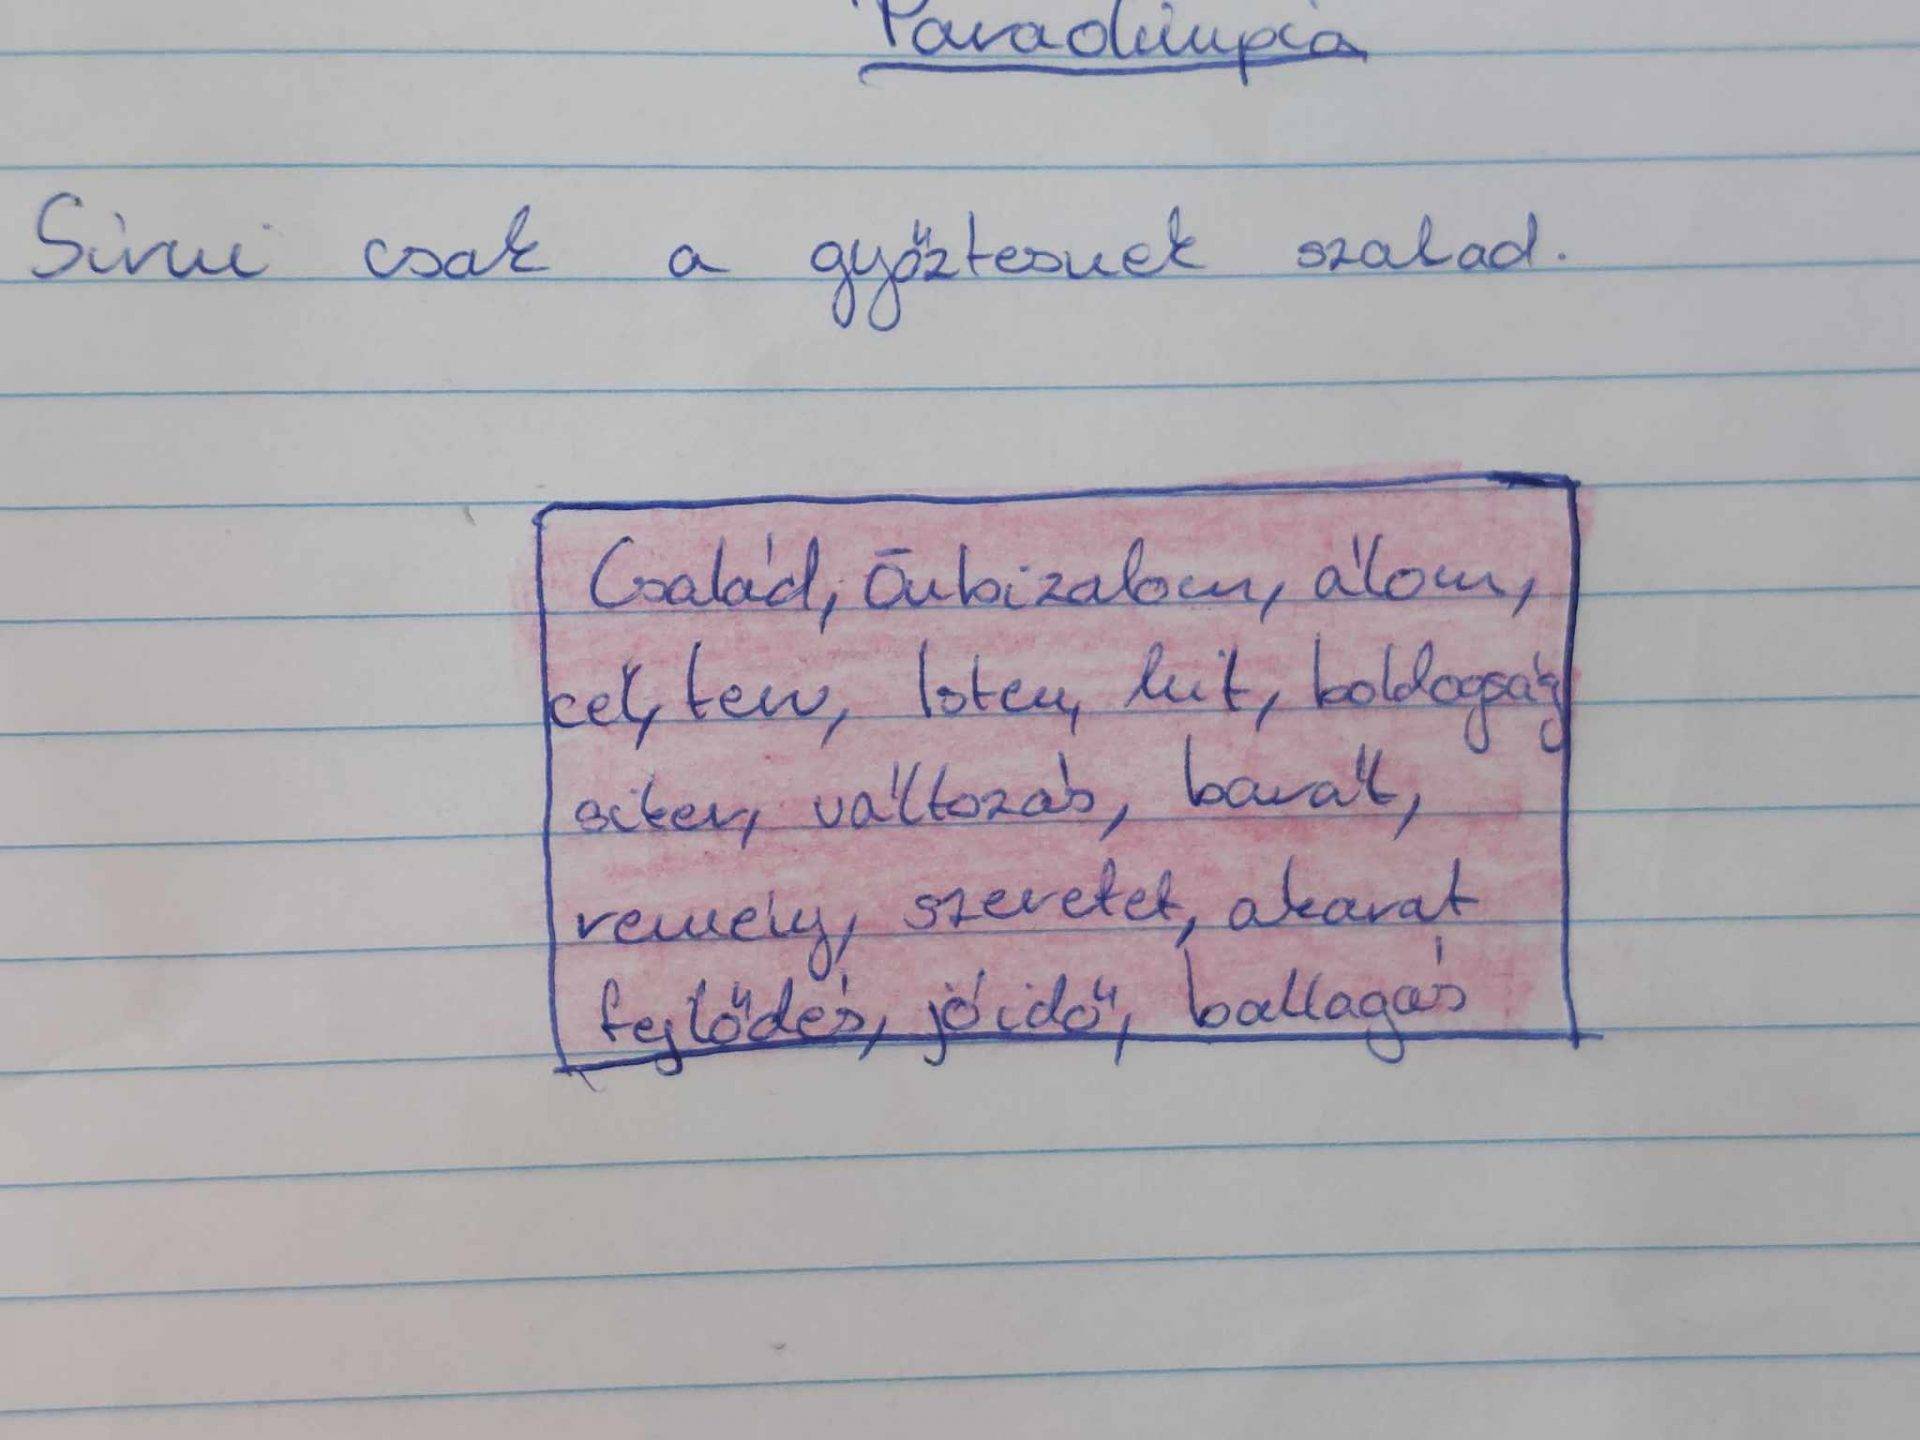 Paraolimpia
Sírni csak a győztesnek szabad.
Család, Önbizalom, álom,
cél, terv, Isten, hit, boldogság
siker, változás, barát,
remény, szeretet, akarat
fejlődés, jó idő, ballagás